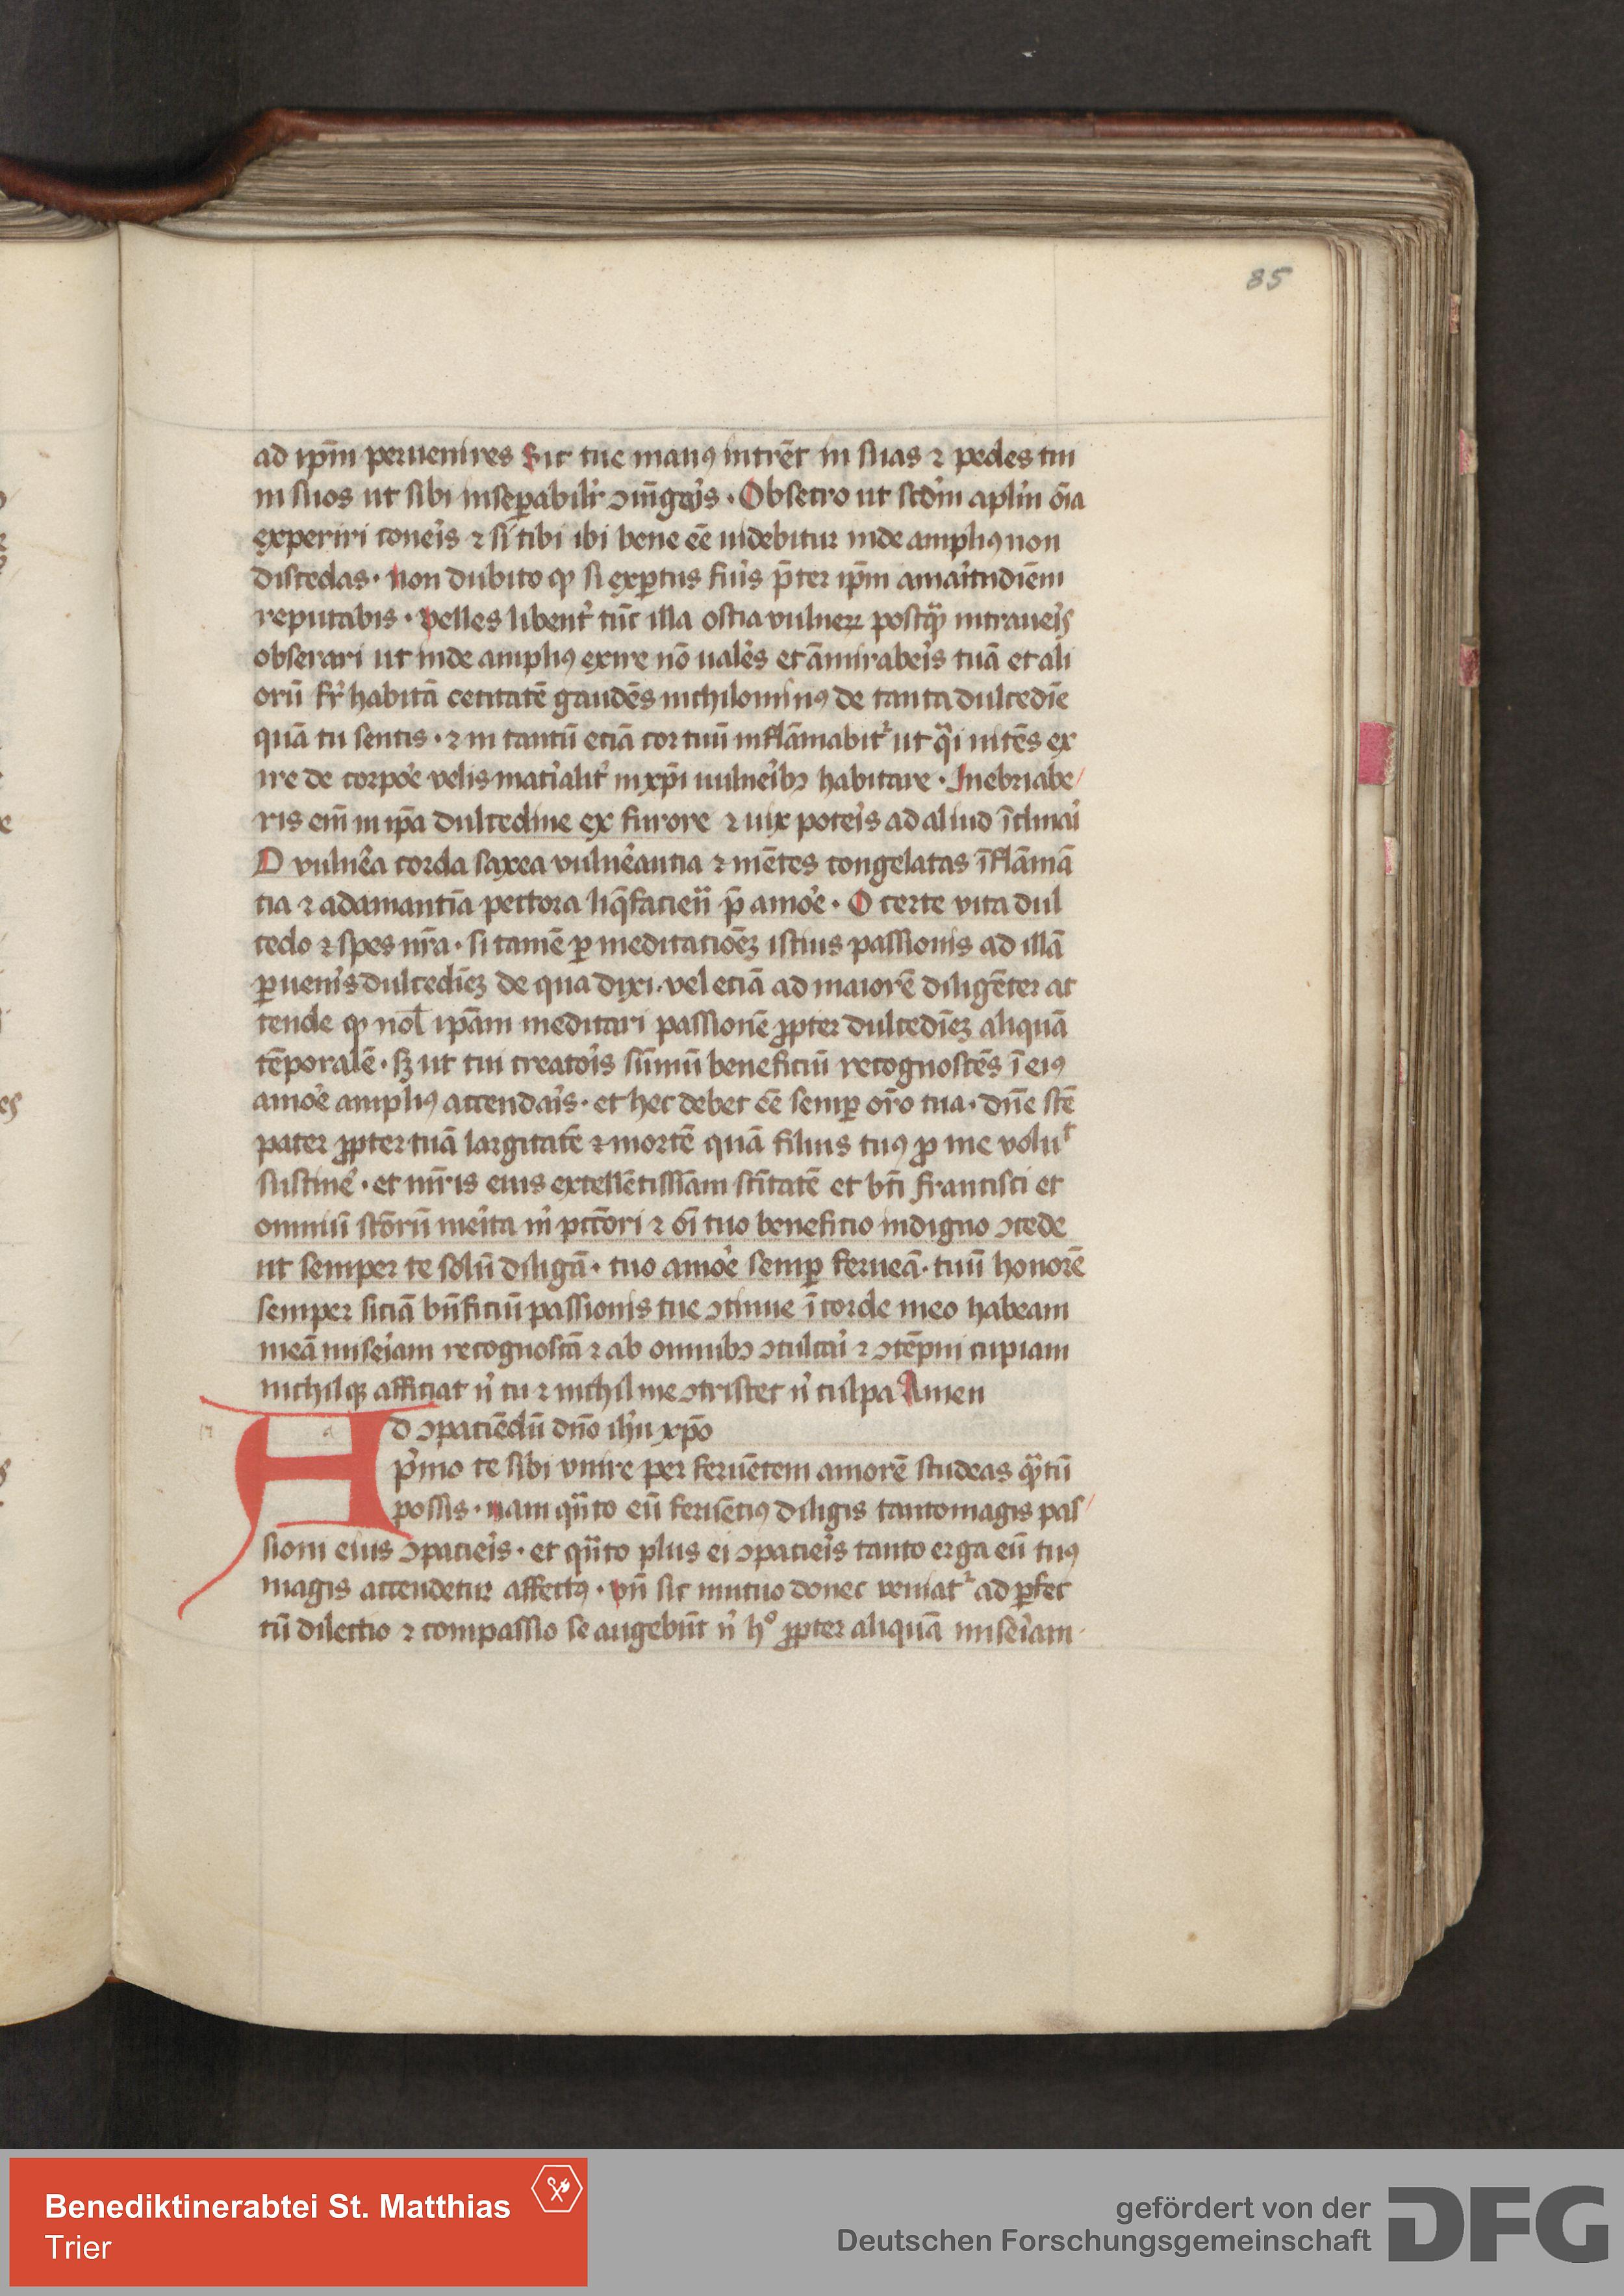 85
ad ip̄m peruenires Sic tue manꝰ intrēt in suas ⁊ pedes tui
in suos ut sibi insepabilr̛ ꝯiūgaris · Obsecro ut scd̛m aplm̄ oīa
experiri coneris ⁊ si tibi ibi bene eē uidebitur inde ampliꝰ non
discedas · non dubito ꝙ si exptus fuis p̄ter ip̄m amaritudiēm
reputabis · velles libent̛ tūc illa ostia vulneꝝ postꝙ̄ intraueis
obserari ut inde ampliꝰ exire nō ualēs et āmirabeis tuā et ali
orū fr̄ habitā cecitatē gaudēs nichilominꝰ de tanta dulcedīe
quā tu sentis · ⁊ in tantū etiā cor tuū inflāmabit᷑ ut qͣi nitēs ex
ire de corpoe velis mat̛ialit̛ in xp̄i uulneibꝫ habitare · Inebriabe/
ris em̄ in ip̄a dulcedine ex furore ⁊ uix poteis ad aliud īclinai
O vulnēa corda saxea vulnēantia ⁊ mētes congelatas īflāmā
tia ⁊ adamantīa pectora liq̄facien̄ p̄ amoe · O certe vita dul
cedo ⁊ spes nr̄a · si tamē ꝑ meditatiōeꝫ istius passionis ad illā
ꝑuenis dulcedīeꝫ de qua dixi · vel etiā ad maiorē diligēter at
tende ꝙ nol̄ ip̄am meditari passionē ꝓpter dulcedīeꝫ aliquā
tēporalē · sꝫ ut tui creatois sūmū beneficiū recognoscēs ī eiꝰ
amoe ampliꝰ accendais · et hec debet eē semꝑ or̄o tua · dn̄e scē
pater ꝓpter tuā largitatē ⁊ mortē quā filius tuꝰ ꝓ me voluͭ
sustine̛ · et mr̄is eius excellētissīam scītatē et bt̄i francisci et
omniū scōrū meita m̛ pccōri ⁊ oī tuo beneficio indigno ꝯcede
ut semper te solū diligā · tuo amoe semꝑ ferueā · tuū honorē
semper sitiā bn̄ficiū passionis tue ꝯtinue ī corde meo habeam
meā miseiam recognoscā ⁊ ab omnibꝫ ꝯculcai ⁊ ꝯtēpni cupiam
nichilqꝫ afficiat n̛ tu ⁊ nichil me ꝯtristet n̛ culpa Amen
Ad ꝯpatiēdū dn̄o ih̄u xp̄o
p̛mo te sibi vnire per feruētem amorē studeas qͣntū
possis · nam qͣnto eū feruētiꝰ diligis tanto magis pas/
sioni eius ꝯpacieis · et qͣnto plus ei ꝯpacieis tanto erga eū tuꝰ
magis accendetur affectꝰ · vn̄ sic mutuo donec veniat᷑ ad ꝑfec
tū dilectio ⁊ compassio se augebūt n̛ hͦ ꝓpter aliquā miseiam
Benediktinerabtei St. Matthias
Trier
gefördert von der
Deutschen Forschungsgemeinschaft
DFG